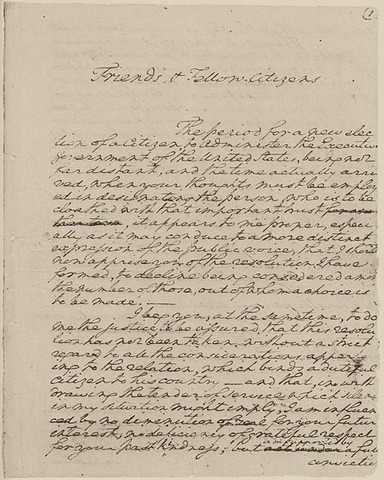 (1
Friends, & Fellow-Citizens
The period for a new elec
tion of a Citizen, to administer the Executive
government of the United States, being not
far distant, and the time actually arri
ved, when your thoughts must be employ
ed in designating the person, who is to be
cloathed with that important trust
it appears to me proper, especi
ally as it may conduce to a more distinct
expression of the public voice, that I should
now apprise you of the resolution I have
formed, to decline being considered among
the number of those, out of whom a choice is
to be made. —
I beg you, at the same time, to do
me the justice to be assured, that this resolu
tion has not been taken, without a strict
regard to all the considerations appertain
ing to the relation, which binds a dutiful
citizen to his country — and that, in with
drawing the tender of service which silence
in my situation might imply, I am influen
ced by no diminution of zeal for your future
interest, no deficiency of grateful respect
for your past kindness; but am supported by
a full
conviction